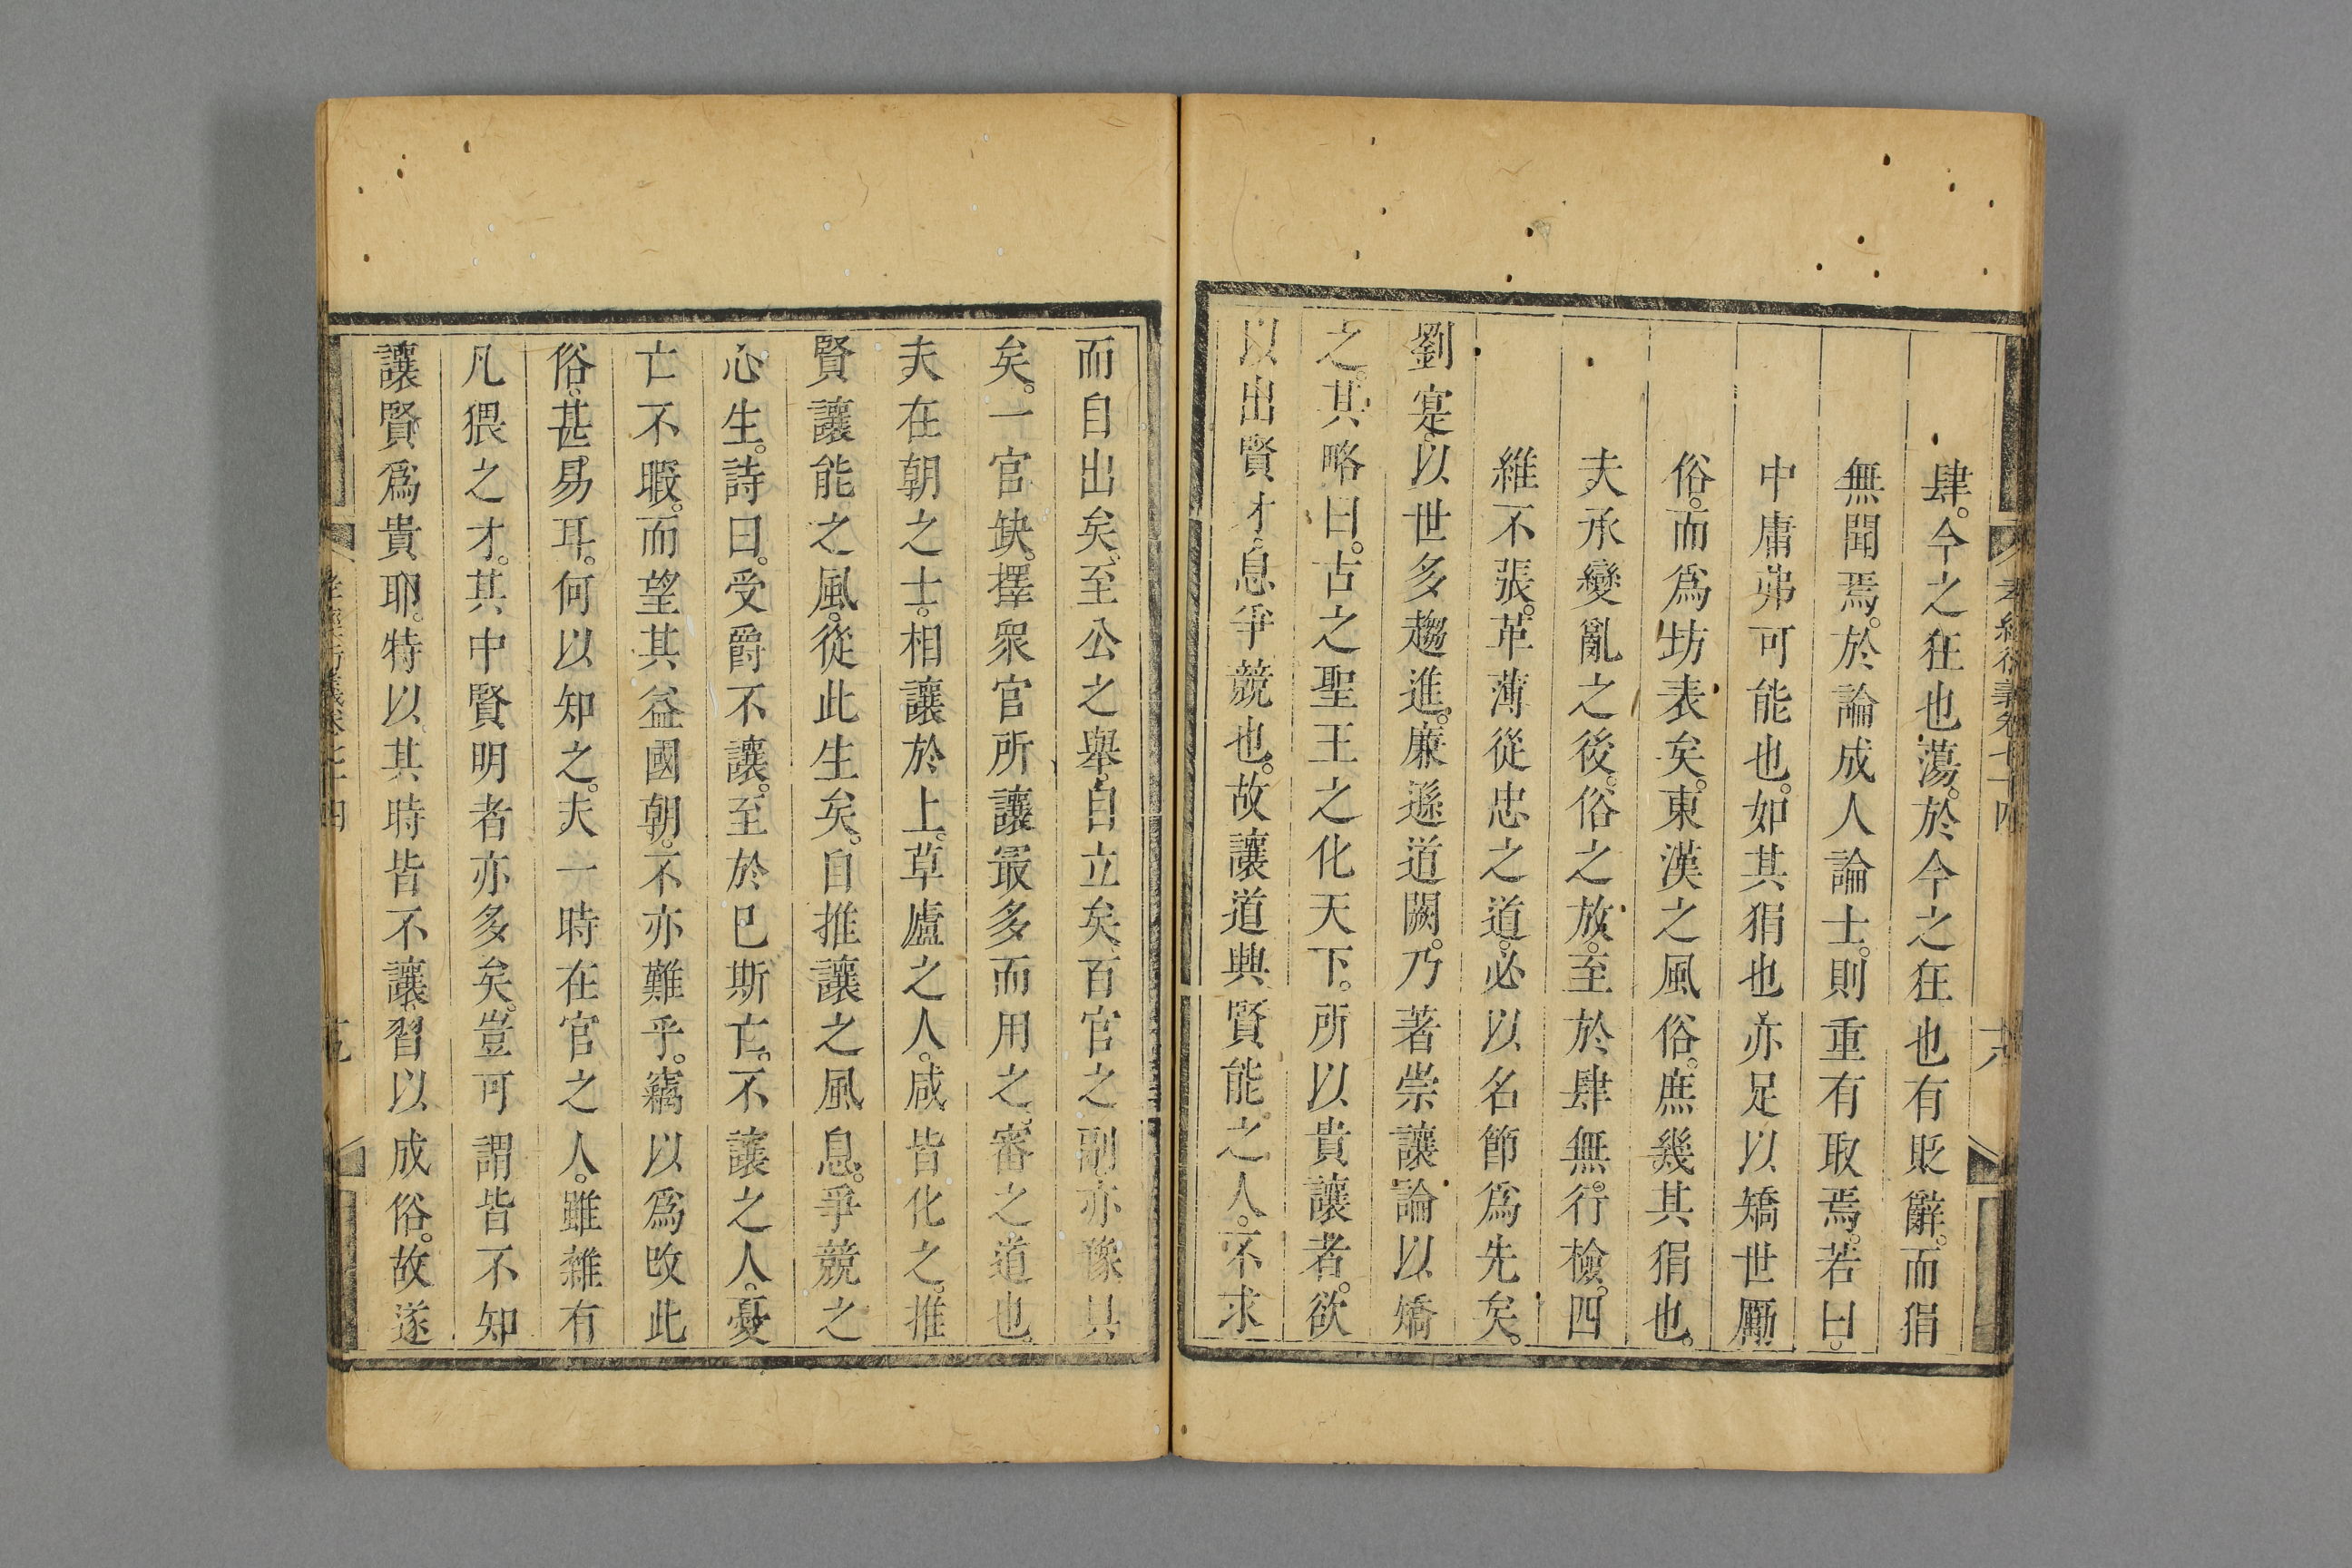 孝經衍義卷七十四
肆。今之狂也蕩。於今之狂也有貶辭。而狷
無聞焉。於論成人論士。則重有取焉。若曰。
中庸弗可能也。如其狷也亦足以矯世勵
俗。而爲坊表矣。東漢之風俗。庶幾其狷也。
夫承變亂之後。俗之放。至於肆無行檢。四
維不張。革薄從忠之道。必以名節爲先矣。
劉寔。以世多趨進。廉遜道闕。乃著崇讓論以矯
之。其略曰。古之聖王之化天下。所以貴讓者。欲
以出賢才。息爭競也。故讓道興。賢能之人。不求
而自出矣。至公之舉。自立矣。百官之副。亦豫具
矣。一官缺。擇衆官所讓最多而用之。審之道也。
夫在朝之士。相讓於上。草廬之人。咸皆化之。推
賢讓能之風。從此生矣。自推讓之風息。爭競之
心生。詩曰。受爵不讓。至於已斯亡。不讓之人。憂
亡不暇。而望其益國朝。不亦難乎。竊以爲改此
俗。甚易耳。何以知之。夫一時在官之人。雖雜有
凡猥之才。其中賢明者亦多矣。豈可謂皆不知
讓賢爲貴耶。特以其時皆不讓。習以成俗。故遂
孝經衍義卷七十四